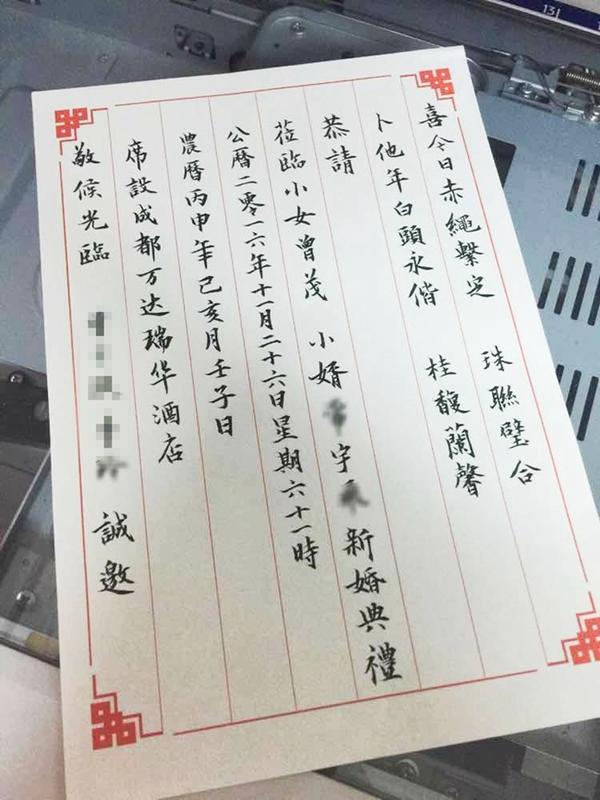 喜今日赤繩繫定 珠聯璧合
卜他年白頭永偕 桂馥蘭馨
恭請
莅臨小女曾茂 小婿 宇 新婚典禮
公曆二零一六年十一月二十六日星期六十一時
農曆丙申年己亥月壬子日
席設成都万达瑞华酒店
敬候光臨 誠邀